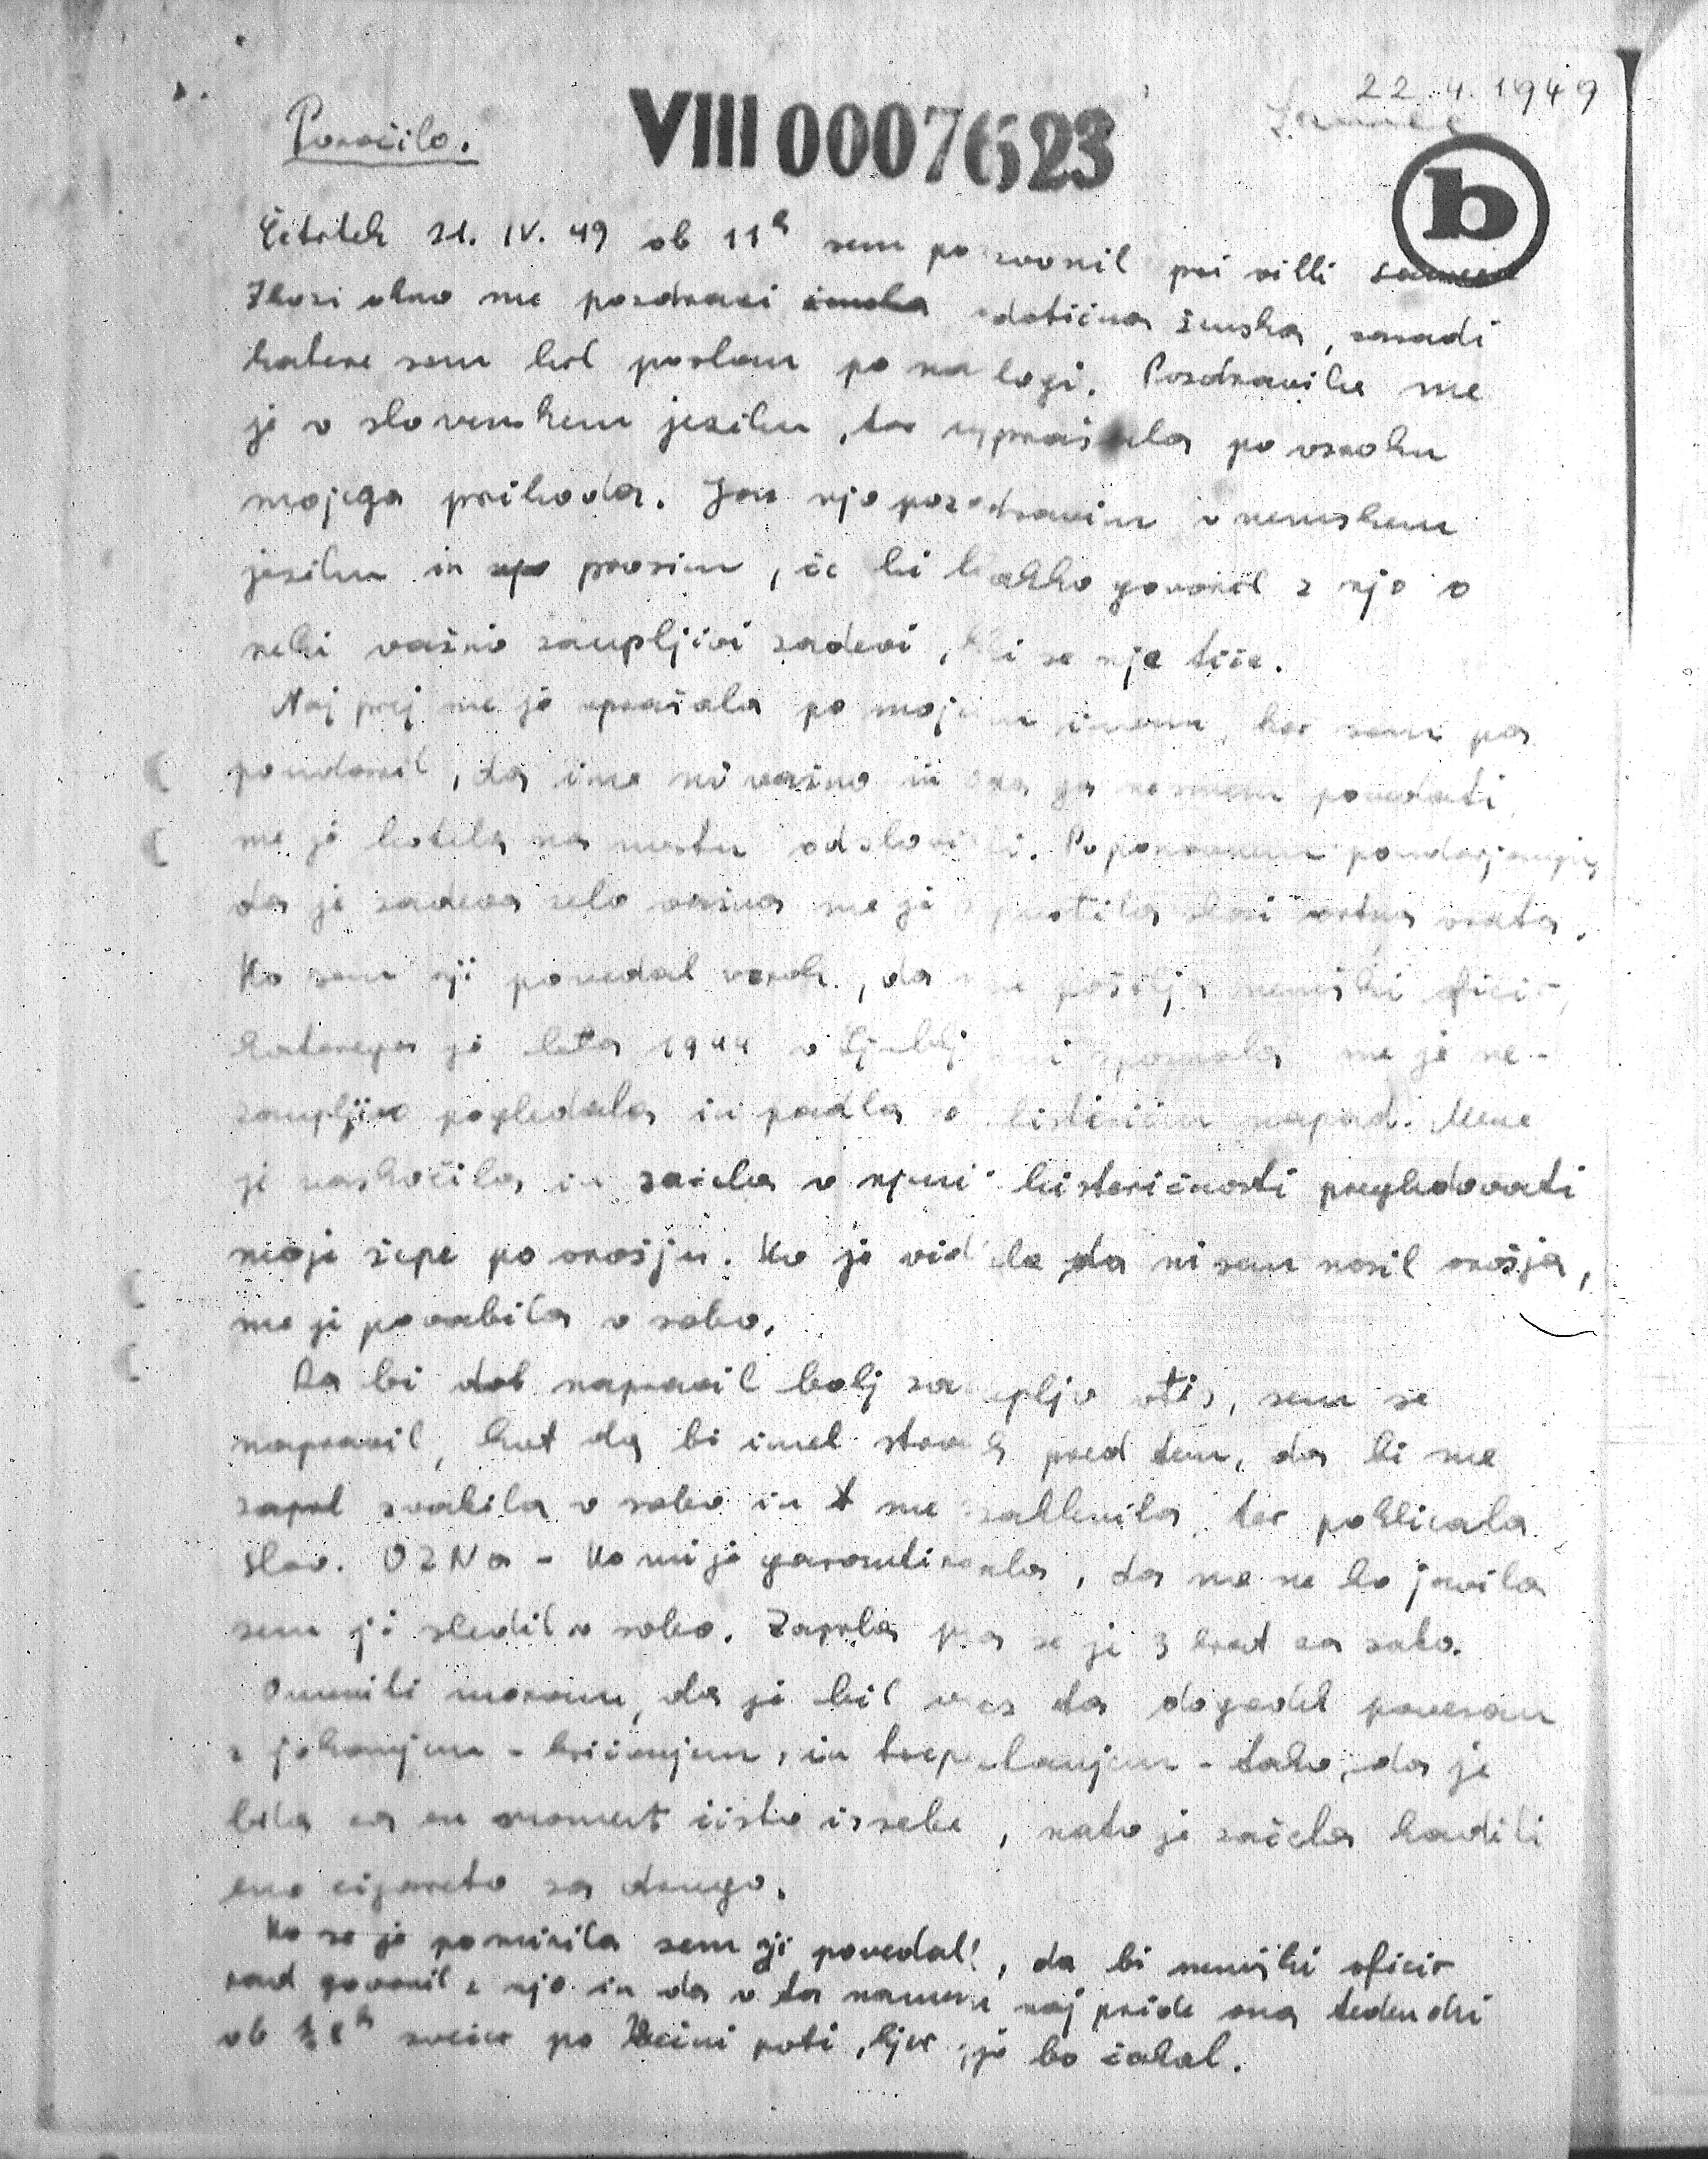 22.4.1949
Poročilo.
VIII 0007623
b
Četrtek 21. IV. 49 ob 11h sem pozvonil pri villi
Skozi okno me pozdravi dotična ženska, zaradi
katere sem bil poslan po nalogi. Pozdravila me
je v slovenskem jeziku, ter vprašala po vzroku
mojega prihoda. Jaz njo pozdravim v nemškem
jeziku in prosim, če bi lahko govoril z njo o
neki važno zaupljivi zadevi, ki se nje tiče.
Naj prej me je vprašala po mojem imenu, ker sem pa
poudaril, da ime ni važno in da ga ne smem povedati,
me je hotela na mestu odsloviti. Po ponovnem poudarjanju,
da je zadeva zelo važna me je spustila skozi vrtna vrata.
Ko sem nji povedal vzrok, da me pošilja nemški oficir,
katerega je leta 1944 v Ljubljani spoznala me je ne-
zaupljivo pogledala in padla v histerični napad. Mene
je naskočila in začela v njeni histeričnosti pregledovati
moje žepe po orožju. Ko je videla da nisem nosil orožja,
me je povabila v sobo.
Da bi napravil bolj zaupljiv vtis, sem se
napravil, kot da bi imel strah pred tem, da bi me
zvabila v sobo in me zaklenila, ter poklicala
slov. OZNa - Ko mi je garantirala, da me ne bo javila
sem ji sledil v sobo. Zaprla pa se je 3 krat za sabo.
Omeniti moram, da je bil ves ta dogodek povezan
z jokanjem - kričanjem, in trepetanjem - tako, da je
bila za en moment čisto iz sebe, nato je začela kaditi
eno cigareto za drugo.
Ko se je pomirila sem ji povedal, da bi nemški oficir
rad govoril z njo in da v ta namen naj pride ona
ob ½ 8h zvečer po poti, kjer jo bo čakal.